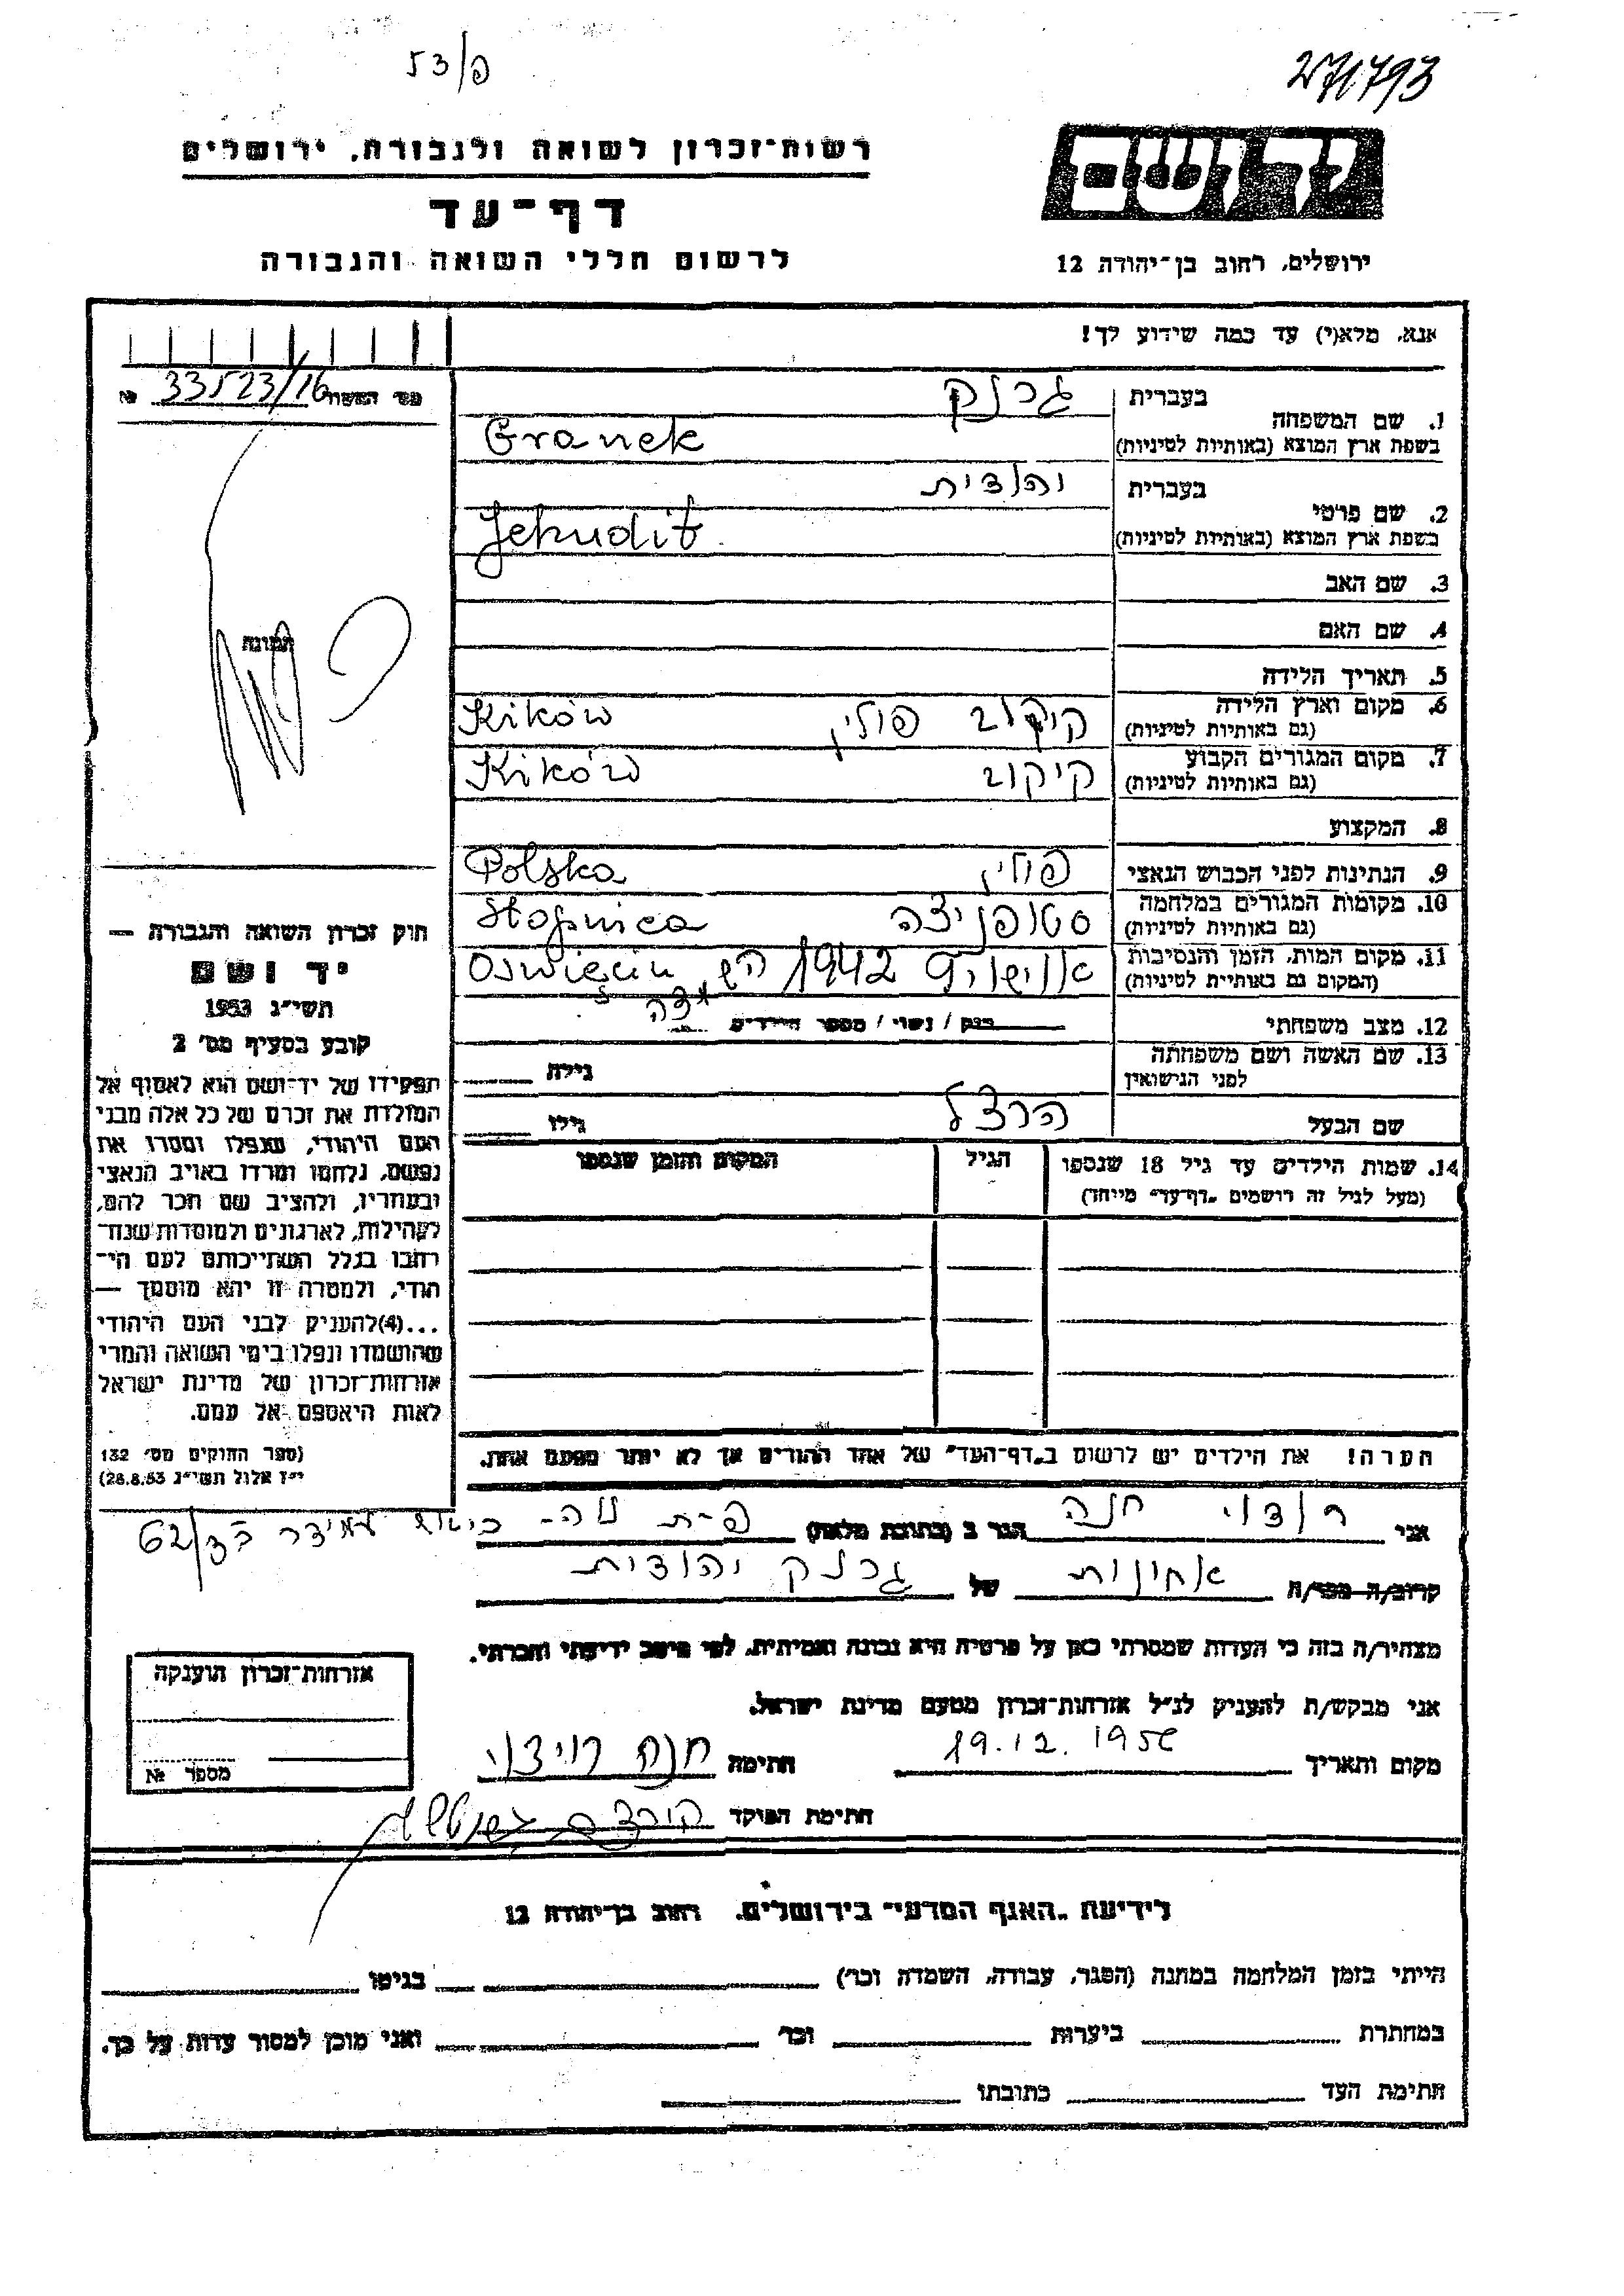 53/פ
271793
רשות-זכרון לשואה ולגבורה, ירושלים
דף-עד
לרשום חללי השואה והגבורה
יד ושם
ירושלים, רחוב בן-יהודה 12
אנא, מלא(י) עד כמה שידוע לך!
מס' המשחה № 33523/16
תמונה
1. שם המשפחה בעברית גרנק
בשפת ארץ המוצא (באותיות לטיניות) Granek
2. שם פרטי בעברית יהודית
בשפת ארץ המוצא (באותיות לטיניות) Jehudit
3. שם האב
4. שם האם
5. תאריך הלידה
6. מקום וארץ הלידה קיקוב פולין Kików
(גם באותיות לטיניות)
7. מקום המגורים הקבוע קיקוב Kików
(גם באותיות לטיניות)
8. המקצוע
9. הנתינות לפני הכבוש הנאצי פולין Polska
10. מקומות המגורים במלחמה סטופניצה Stopnica
(גם באותיות לטיניות)
11. מקום המות, הזמן והנסיבות 1942 Oświęcim
(המקום גם באותיות לטיניות)
12. מצב משפחתי רווק / נשוי / מספר הילדים
13. שם האשה ושם משפחתה
לפני הנישואין גילה
שם הבעל הרצל גילו
14. שמות הילדים עד גיל 18 שנספו הגיל המקום והזמן שנספו
(מעל לגיל זה רושמים "דף-עד" מיוחד)
הערה! את הילדים יש לרשום ב"דף-העד" של אחד ההורים אך לא יותר מפעם אחת.
חוק זכרון השואה והגבורה —
יד ושם
תשי"ג 1953
קובע בסעיף מס' 2
תפקידו של יד-ושם הוא לאסוף אל
המולדת את זכרם של כל אלה מבני
העם היהודי, שנפלו ומסרו את
נפשם, נלחמו ומרדו באויב הנאצי
ובעוזריו, ולהציב שם וזכר להם,
לקהילות, לארגונים ולמוסדות שנח־
רבו בגלל השתייכותם לעם הי־
הודי, ולמטרה זו יהא מוסמך —
...(4) להעניק לבני העם היהודי
שהושמדו ונפלו בימי השואה והמרי
אזרחות-זכרון של מדינת ישראל
לאות היאספם אל עמם.
(ספר החוקים מס' 132
י"ז אלול תשי"ג 28.8.53)
אני חנה הגר ב (כתובת מלאה) 62/
קרוב/ה מכר/ה אחינות של גרנק יהודית
מצהיר/ה בזה כי העדות שמסרתי כאן על פרטיה היא נכונה ואמיתית, לפי מיטב ידיעתי והכרתי.
אני מבקש/ת להעניק לנ"ל אזרחות-זכרון מטעם מדינת ישראל.
מקום ותאריך 19.12.195 חתימה חנה
חתימת הפוקד
אזרחות-זכרון הוענקה
מספר №
לידיעת "האגף המדעי" בירושלים, רחוב בן-יהודה 12
הייתי בזמן המלחמה במחנה (הסגר, עבודה, השמדה וכו') בגיטו
במחתרת ביערות וכו' ואני מוכן למסור עדות על כך.
חתימת העד כתובתו